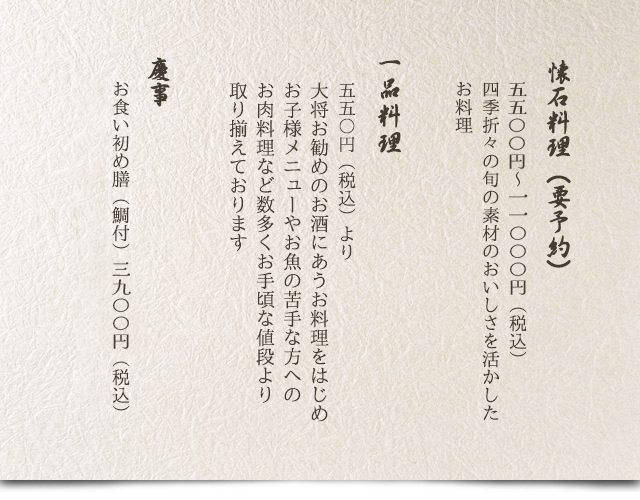 懐石料理（要予約）
五五〇〇円～一一〇〇〇円（税込）
四季折々の旬の素材のおいしさを活かした
お料理
一品料理
五五〇円（税込）より
大将お勧めのお酒にあうお料理をはじめ
お子様メニューやお魚の苦手な方への
お肉料理など数多くお手頃な値段より
取り揃えております
慶事
お食い初め膳（鯛付）三九〇〇円（税込）